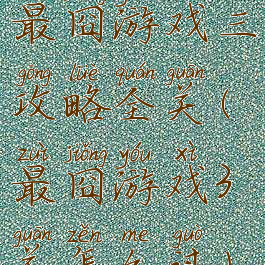 最囧游戏三
gōng lüè quán guān
攻略全关(
zuì jiǒng yóu xì
最囧游戏3
guān zěn me guò